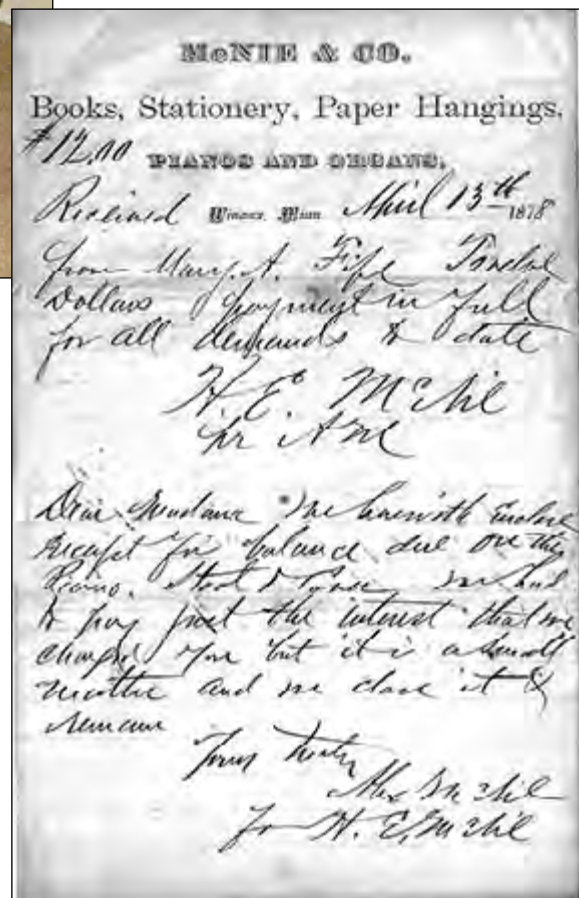 McNIE & CO.
Books, Stationery, Paper Hangings,
$12.00 PIANOS AND ORGANS,
Received Winona, Minn. April 13th 1878
from Mary. A. Fife Twelve
Dollars payment in full
for all demands to date
H. E. McNie
pr AM
Dear Madame We herewith Enclose
Receipt for balance due on the
Piano. Stool & we had
to pay just the interest that we
charged you but it is a small
matter and we close it &
remain
Yours truly
Alex McNie
for H. E. McNie